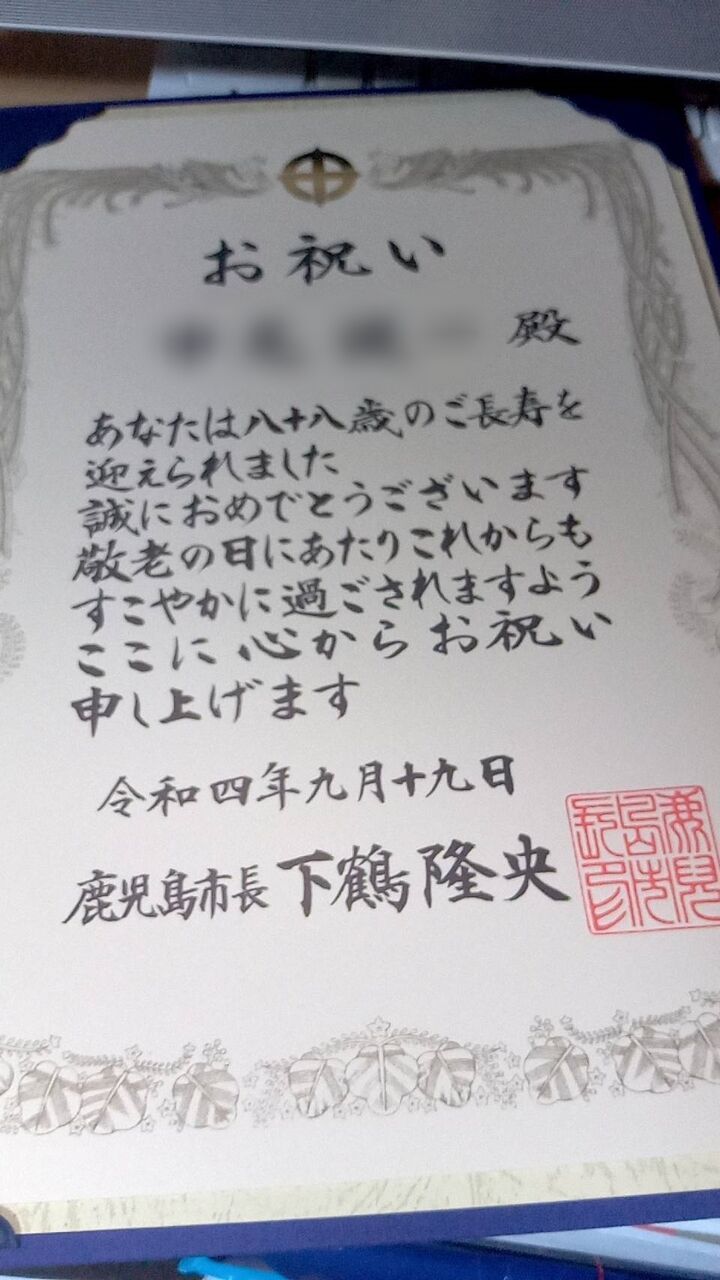 お祝い
殿
あなたは八十八歳のご長寿を
迎えられました
誠におめでとうございます
敬老の日にあたりこれからも
すこやかに過ごされますよう
ここに心からお祝い
申し上げます
令和四年九月十九日
鹿児島市長 下鶴隆央